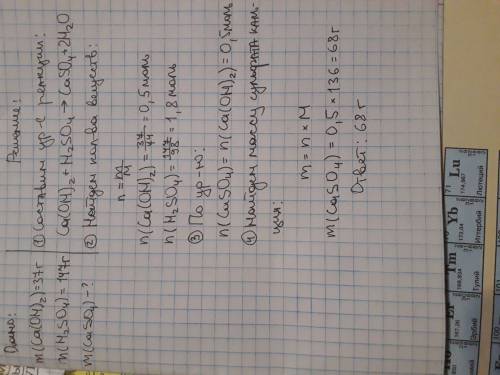 Дано:
m(Ca(OH)₂)=37г
m(H₂SO₄)=147г
m(CaSO₄)-?
Решение:
① Составим ур-е реакции:
Ca(OH)₂+H₂SO₄→CaSO₄+2H₂O
② Найдем кол-ва веществ:
n=m/M
n(Ca(OH)₂)=37/74=0,5моль
n(H₂SO₄)=147/98=1,8моль
③ По ур-ю:
n(CaSO₄)=n(Ca(OH)₂)=0,5моль
④ Найдем массу сульфата каль-
ция:
m=n×M
m(CaSO₄)=0,5×136=68г
Ответ: 68г
71 Lu
174,967
Лютеций
Yb
173,04
Иттербий
Tm
168,934
Тулий
Er
167,26
Эрбий